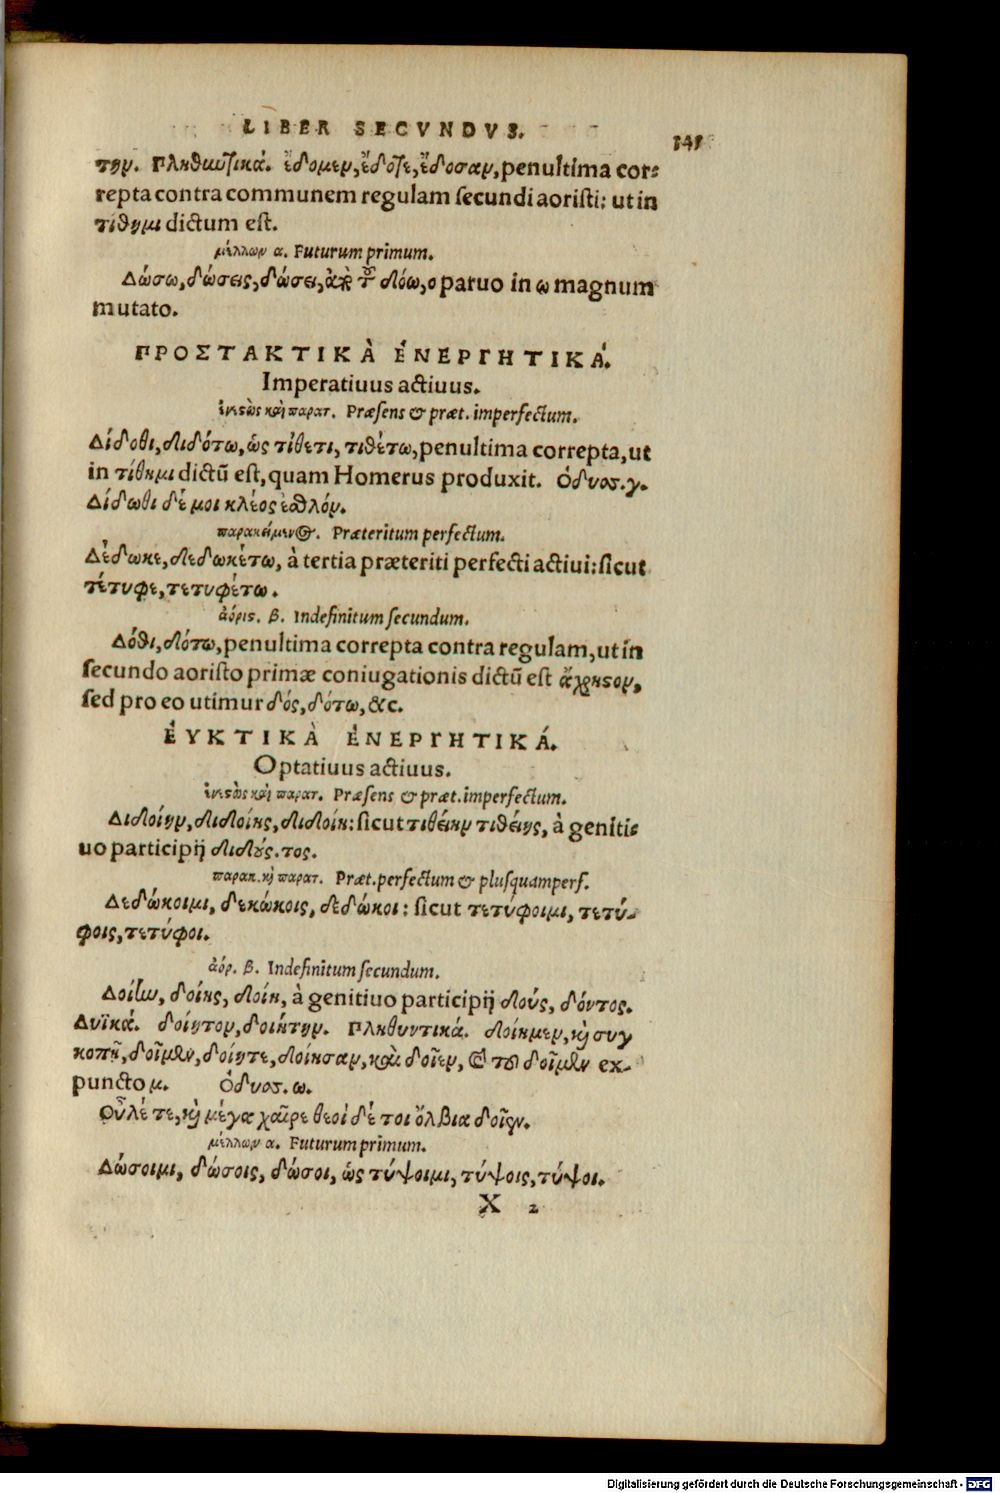 LIBER SECVNDVS.
141
την. Πληθυντικά. ἔδομεν, ἔδοτε, ἔδοσαν, penultima cor-
repta contra communem regulam secundi aoristi: ut in
τίθημι dictum est.
μέλλων α. Futurum primum.
Δώσω, δώσεις, δώσει, ἀπὸ τοῦ δόω, ο paruo in ω magnum
mutato.
ΠΡΟΣΤΑΚΤΙΚᾺ ἘΝΕΡΓΗΤΙΚΆ.
Imperatiuus actiuus.
ἐνεστὼς καὶ παρατ. Præsens & præt. imperfectum.
Δίδοθι, διδότω, ὡς τίθετι, τιθέτω, penultima correpta, ut
in τίθημι dictũ est, quam Homerus produxit. Ὀδυσσ. γ.
Δίδωθι δέ μοι κλέος ἐσθλόν.
παρακείμενος. Præteritum perfectum.
Δέδωκε, δεδωκέτω, à tertia præteriti perfecti actiui: sicut
τέτυφε, τετυφέτω.
ἀόρις. β. Indefinitum secundum.
Δόθι, δότω, penultima correpta contra regulam, ut in
secundo aoristo primæ coniugationis dictũ est
sed pro eo utimur δός, δότω, &c.
ἘΥΚΤΙΚᾺ ἘΝΕΡΓΗΤΙΚΆ.
Optatiuus actiuus.
ἐνεστὼς καὶ παρατ. Præsens & præt. imperfectum.
Διδοίην, διδοίης, διδοίη: sicut τιθείην τιθείης, à geniti-
uo participij διδούς. τος.
παρακ. καὶ παρατ. Præt. perfectum & plusquamperf.
Δεδώκοιμι, δεκώκοις, δεδώκοι: sicut τετύφοιμι, τετύ-
φοις, τετύφοι.
ἀόρ. β. Indefinitum secundum.
Δοίην, δοίης, δοίη, à genitiuo participij δούς, δόντος.
Δυϊκά. δοίητον, δοιήτην. Πληθυντικά. δοίημεν, καὶ συγ
κοπῇ, δοῖμεν, δοίητε, δοίησαν, καὶ δοῖεν, & τὸ δοῖμεν ex-
puncto μ. Ὀδυσσ. ω.
Οὖλέ τε, καὶ μέγα χαῖρε θεοὶ δέ τοι ὄλβια δοῖεν.
μέλλων α. Futurum primum.
Δώσοιμι, δώσοις, δώσοι, ὡς τύψοιμι, τύψοις, τύψοι.
X 2
Digitalisierung gefördert durch die Deutsche Forschungsgemeinschaft - DFG